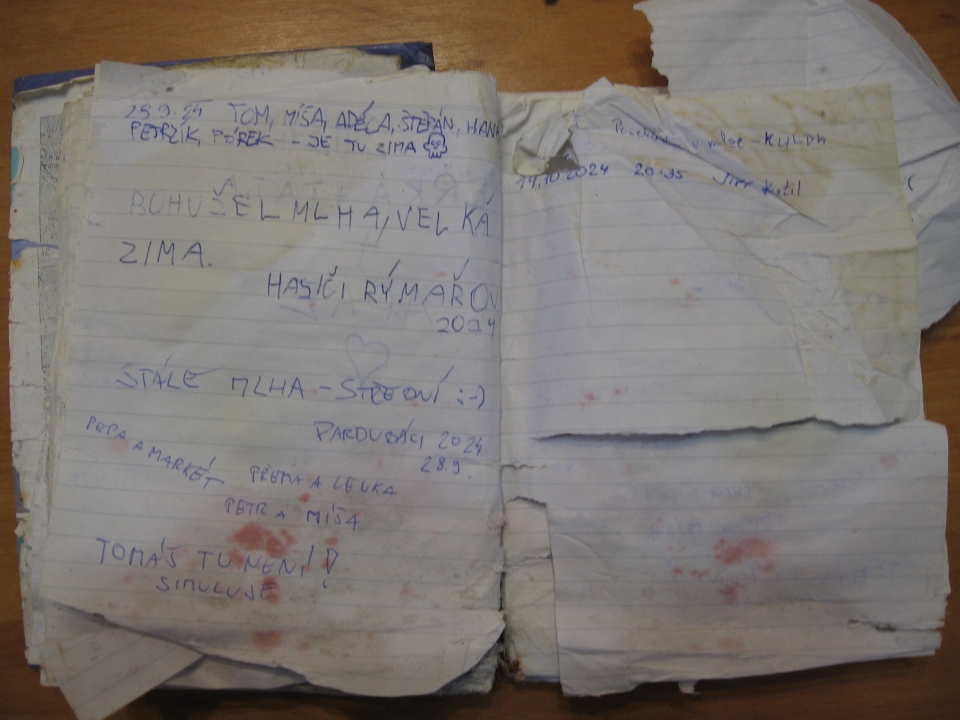 TOM, MÍŠA, ADÉLA, ŠTĚPÁN, HANK
PETRZIK, PÓREK - JE TU ZIMA
BOHUŽEL MLHA, VELKÁ
ZIMA.
HASIČI RÝMAŘOV
2024
STÁLE MLHA - STŘEDNÍ :-)
PARDUBÁCI 2024
28.9.
PEPA A MARKÉT
PŘEMA A LENKA
PETR A MÍŠA
TOMÁŠ TU NENÍ!!
SIMULUJE
v mlze - KULDA
19.10.2024 20:35 Jirr Kutil